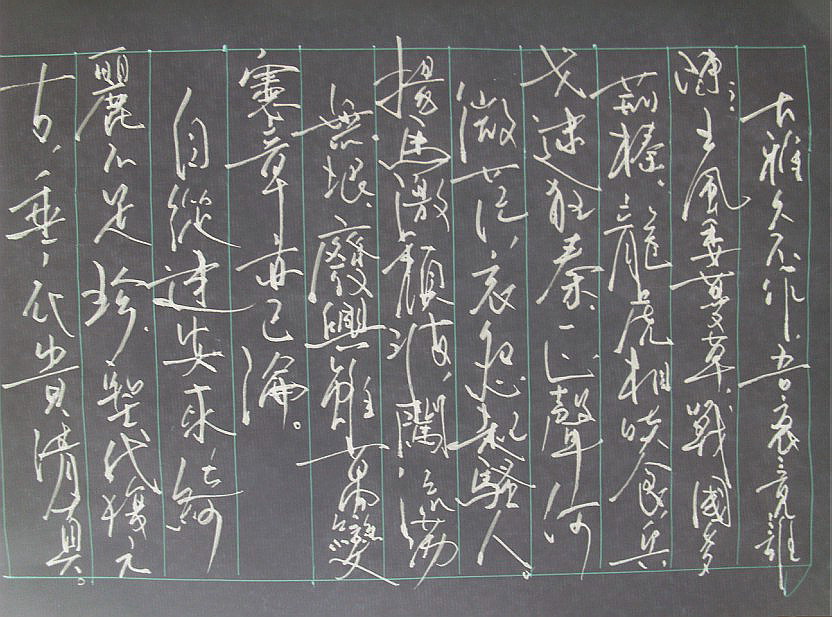 大雅久不作,吾衰竟誰
陳。王風委蔓草,戰國多
荊榛。龍虎相啖食,兵
戈逮狂秦。正聲何
微茫,哀怨起騷人。
揚馬激頹波,開流蕩
無垠。廢興雖萬變
憲章亦已淪。
自從建安來,綺
麗不足珍。聖代復元
古,垂衣貴清真。